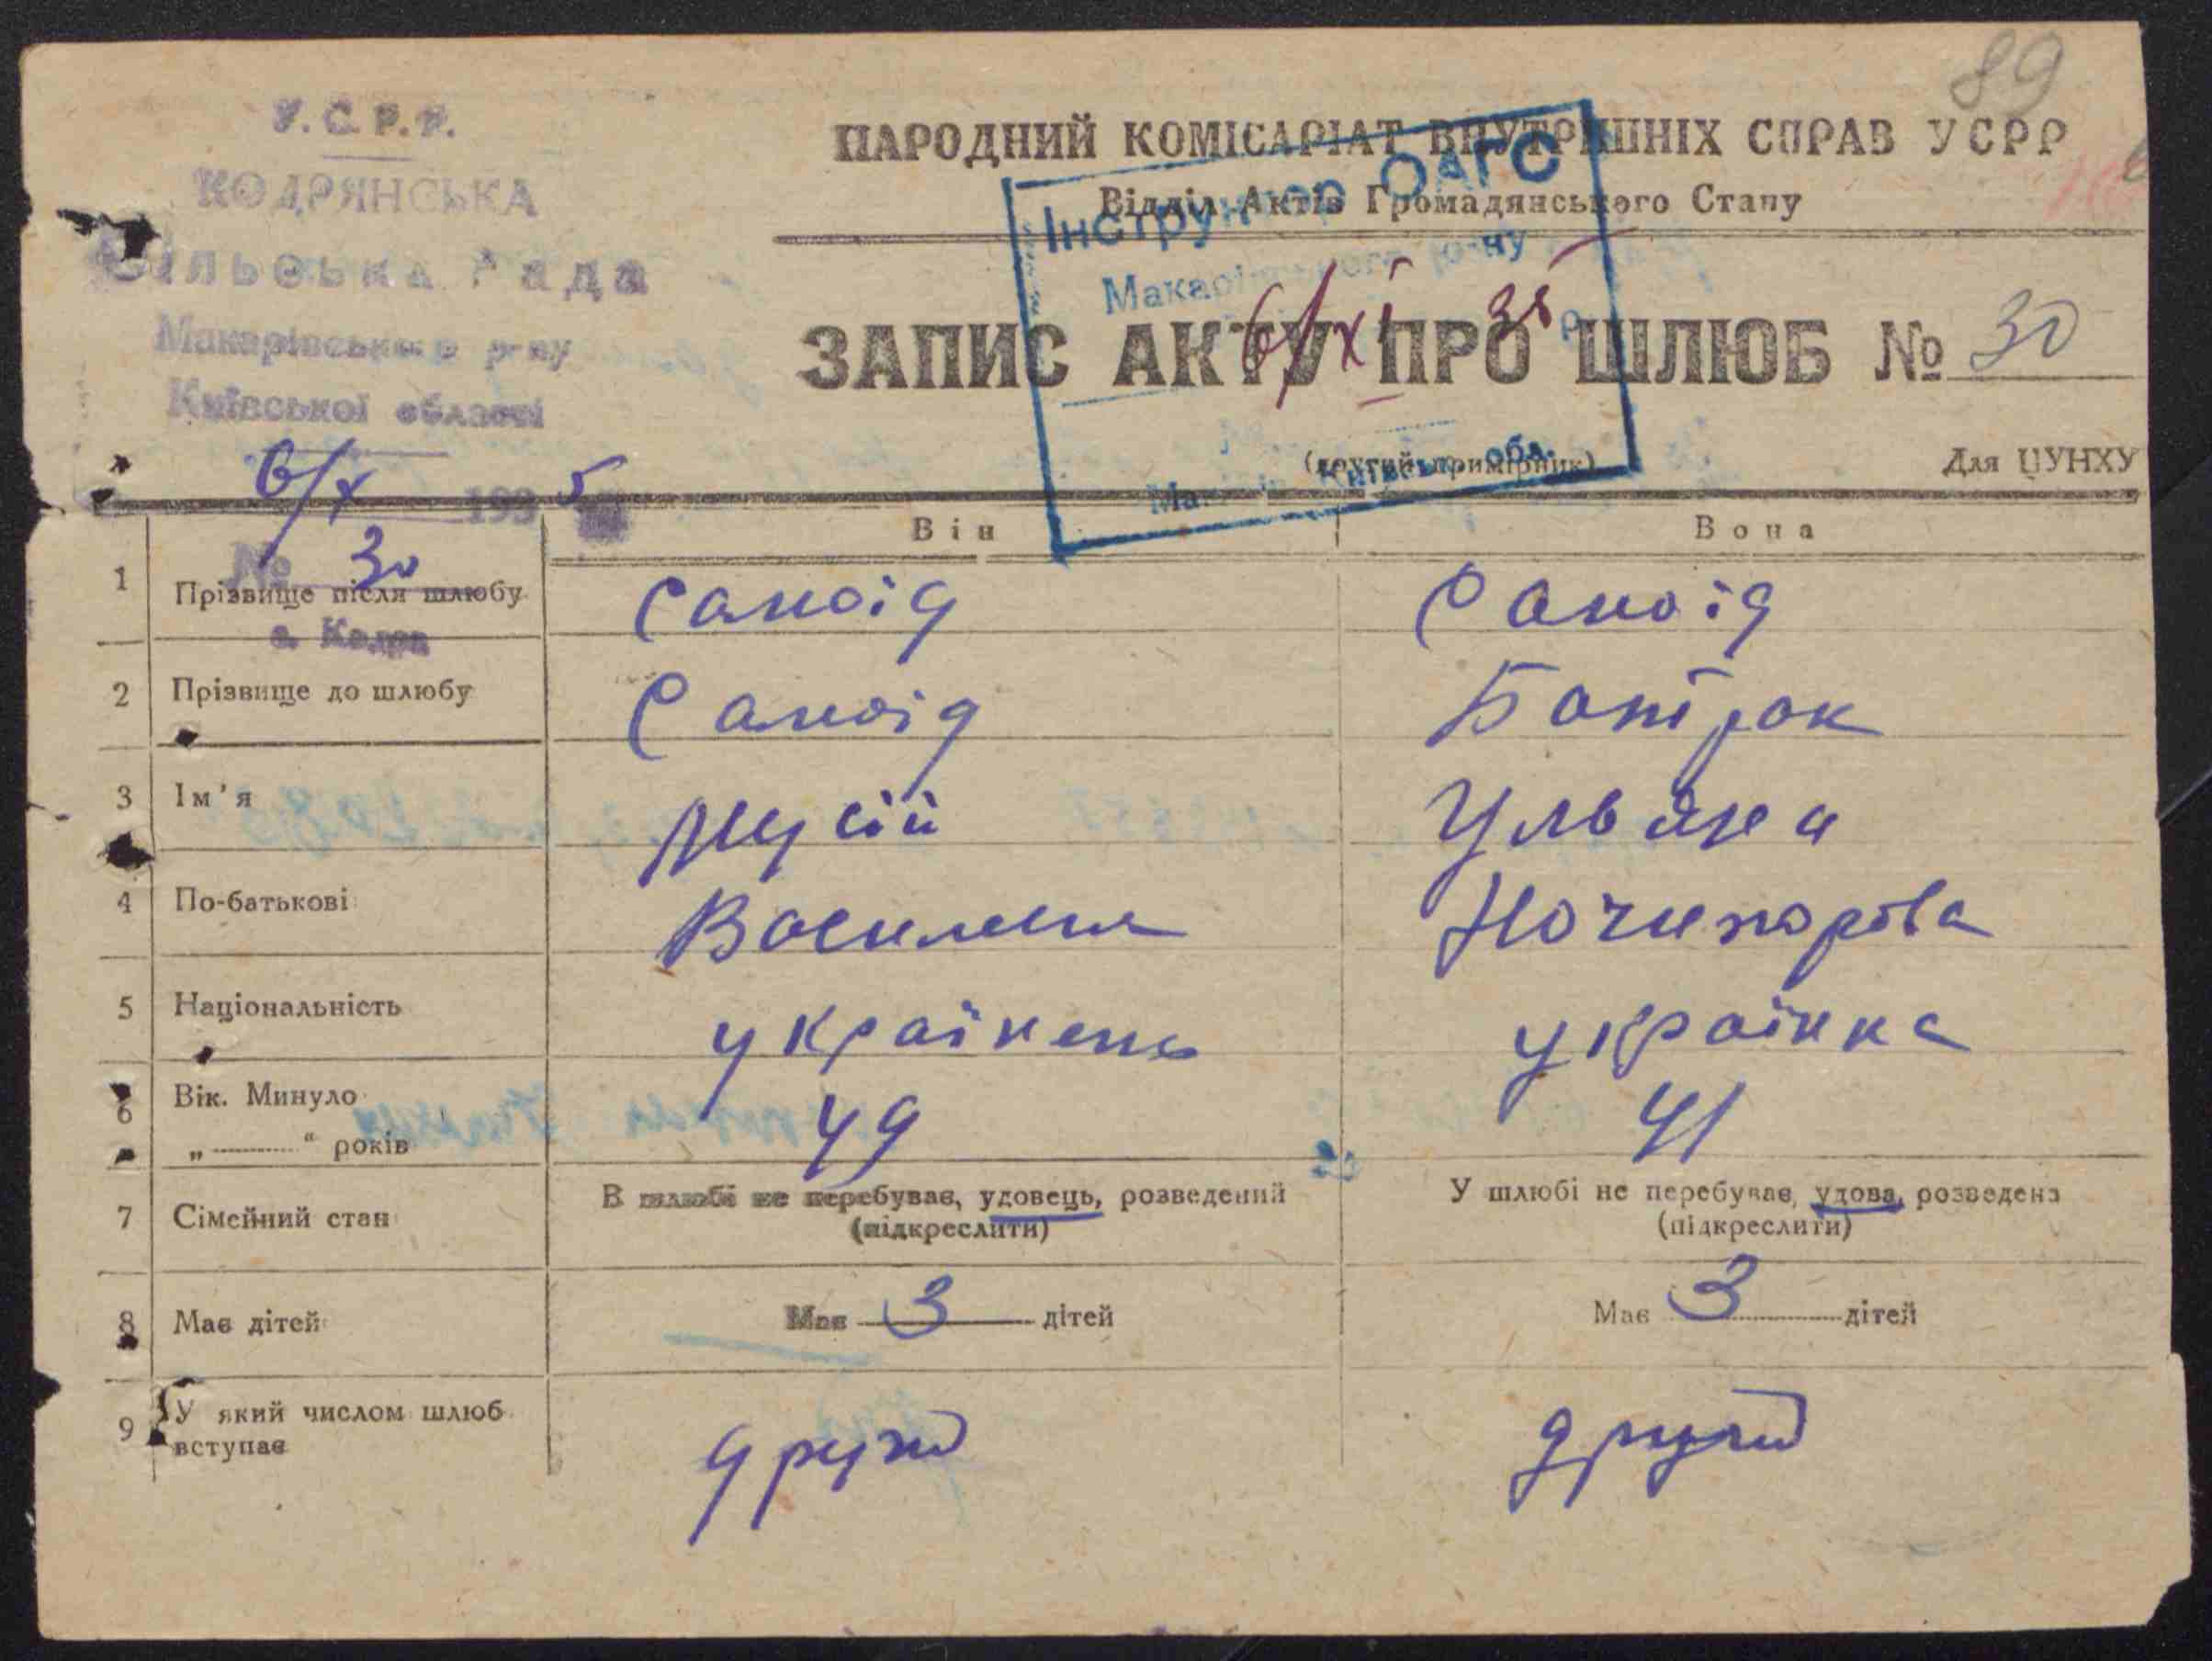 89
У.С.Р.Р.
КОДРЯНСЬКА
СІЛЬСЬКА РАДА
Макарівського р-ну
Київської області
6/X 1935
№ 30
с. Кодра
НАРОДНИЙ КОМІСАРІАТ ВНУТРІШНІХ СПРАВ УСРР
Відділ Актів Громадянського Стану
Інструктор ОАГС
Макарівського р-ну
6/XI 35 р.
Київськ. обл.
ЗАПИС АКТУ ПРО ШЛЮБ № 30
(другий примірник)
Для ЦУНХУ
Він Вона
1 Прізвище після шлюбу Самоід Самоід
2 Прізвище до шлюбу Самоід Батрак
3 Ім'я Мусій Ульяна
4 По-батькові Ничипорова
5 Національність українець українка
6 Вік. Минуло „ “ років 49 41
7 Сімейний стан В шлюбі не перебував, удовець, розведений (підкреслити) У шлюбі не перебував, удова, розведена (підкреслити)
8 Має дітей Має 3 дітей Має 3 дітей
9 У який числом шлюб вступає другий другий